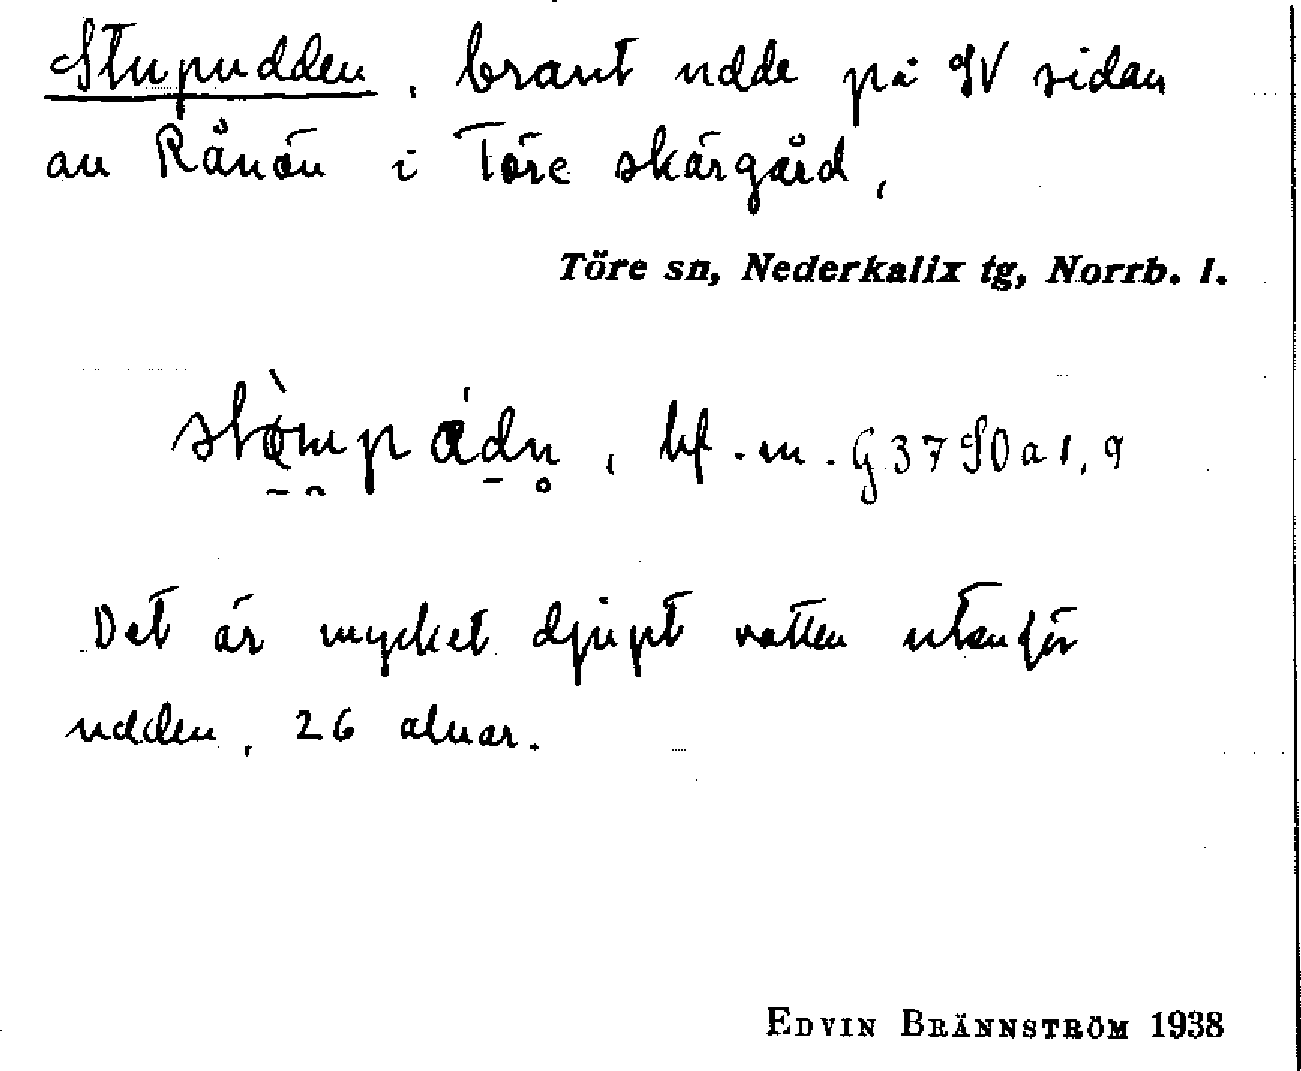 Stupudden, brant udde på SV sidan
av Rånön i Töre skärgård,
Töre sn, Nederkalix tg, Norrb. l.
bf. m. G 37 SO a 1, 9
Det är mycket djupt vatten utanför
udden, 26 alnar.
EDVIN BRÄNNSTRÖM 1938